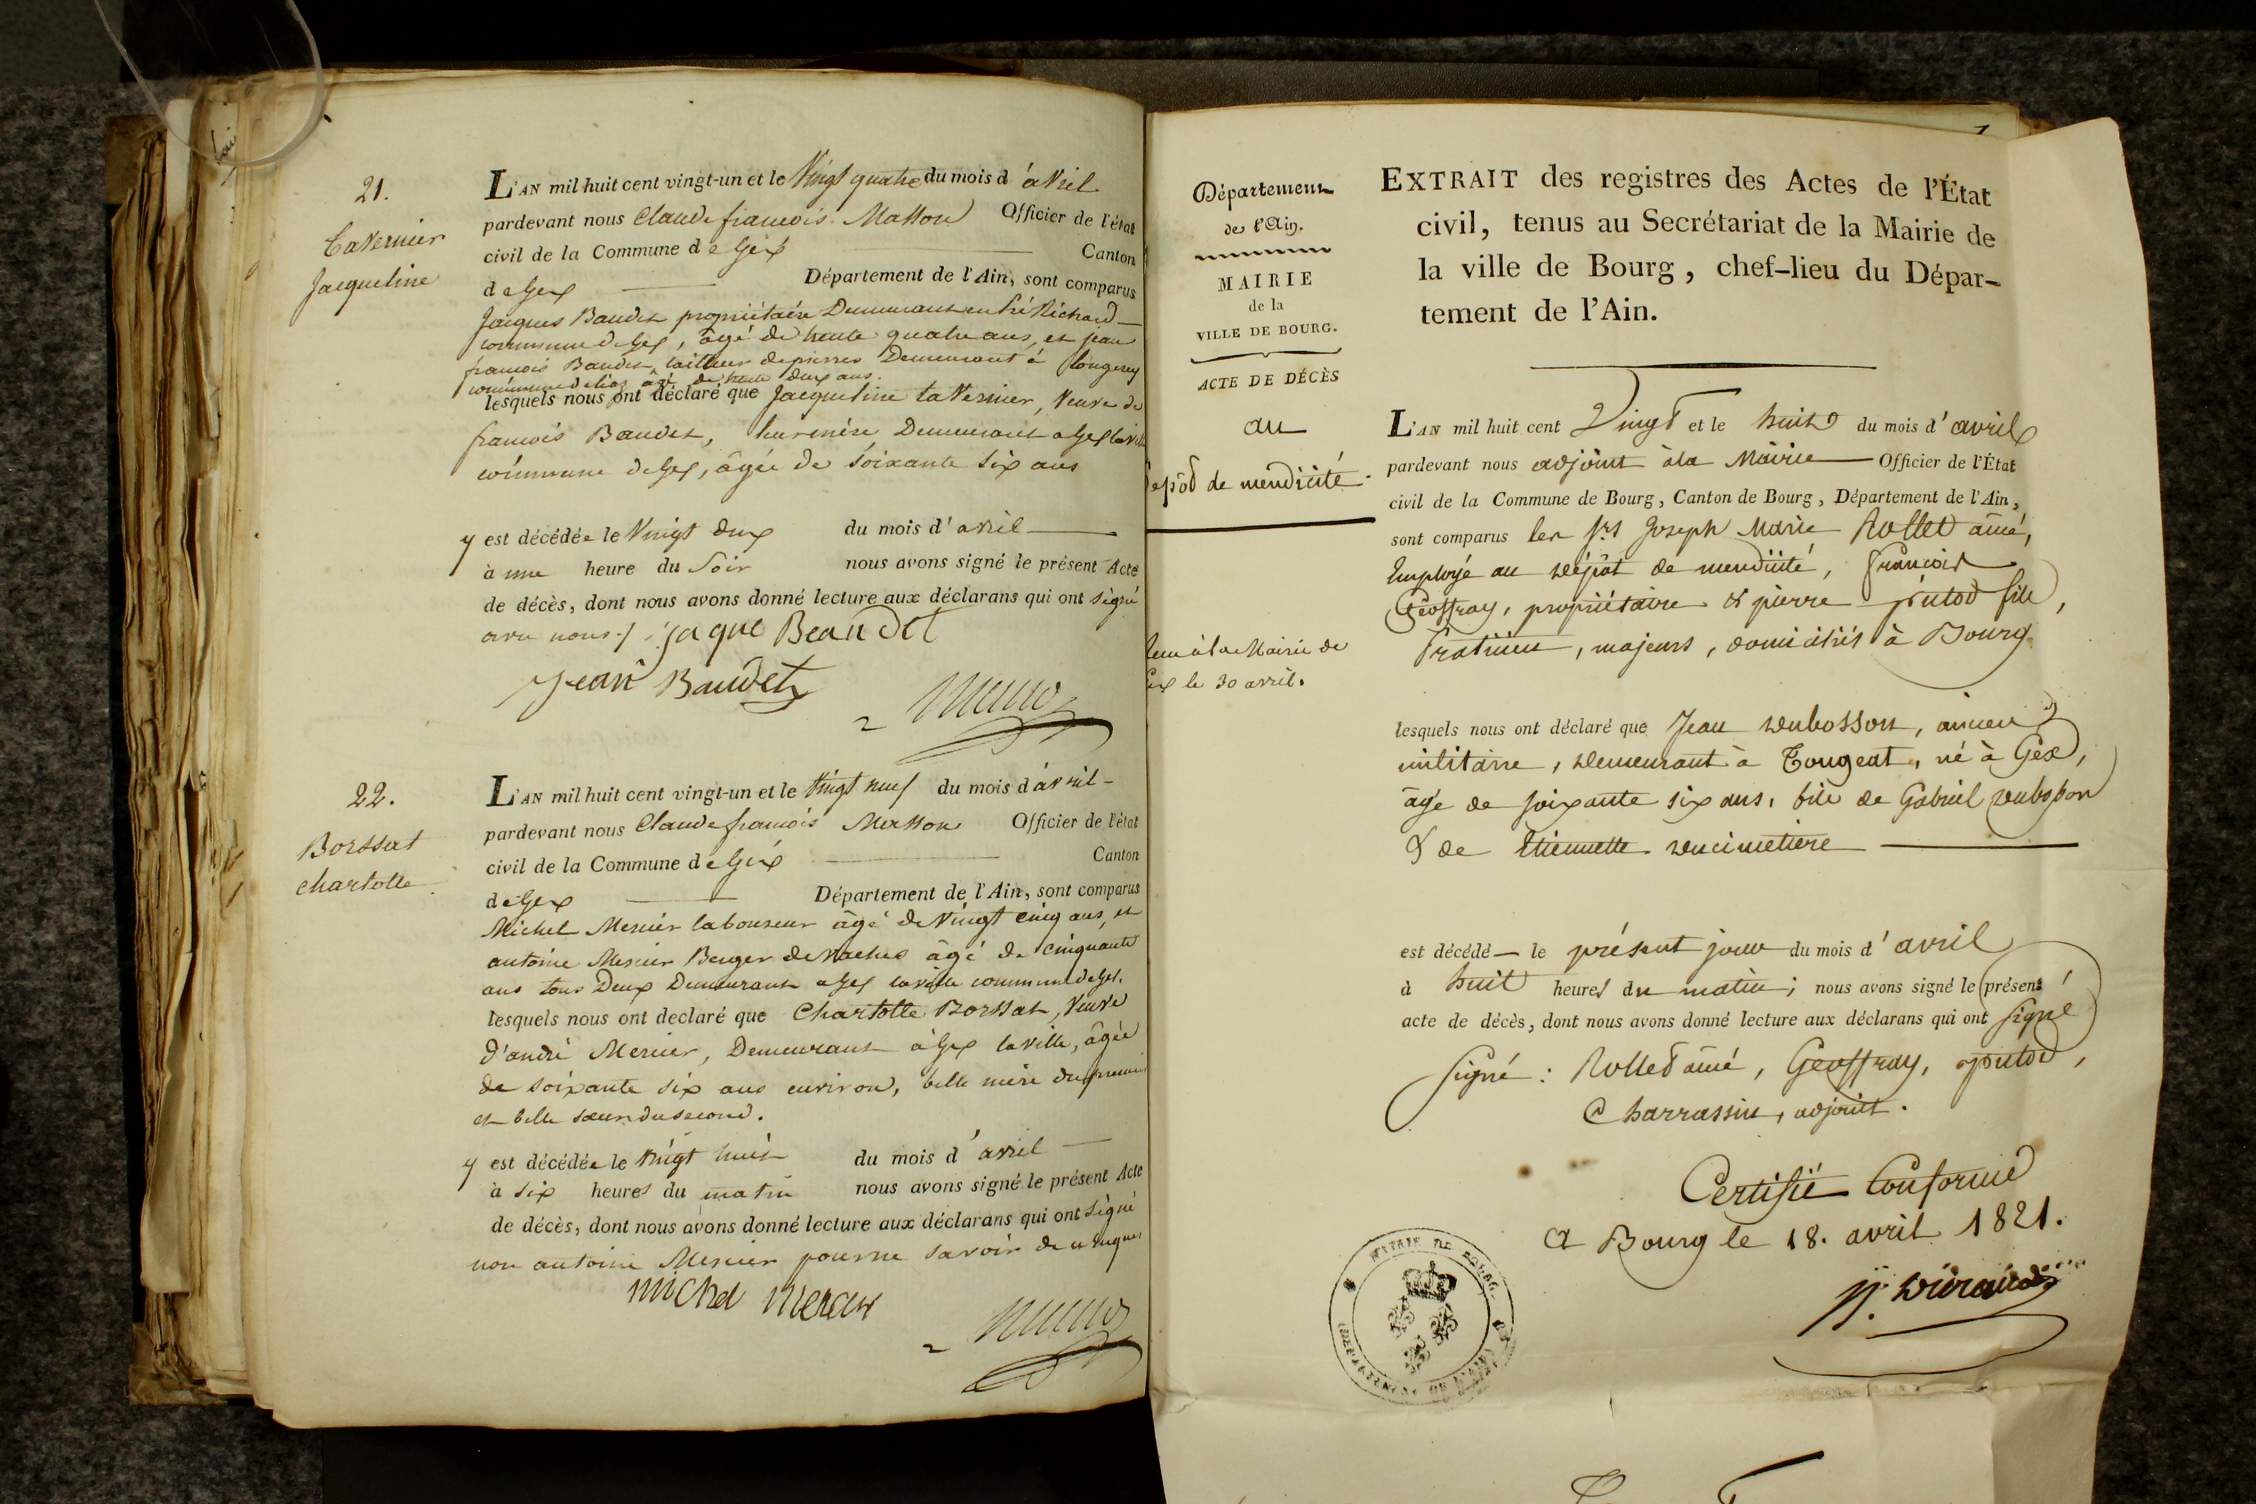 21.
Tavernier
Jacqueline
L'AN mil huit cent vingt-un et le Vingt quatre du mois d'avril
pardevant nous Claude françois Masson Officier de l'état
civil de la Commune de Gex Canton
de Gex Département de l'Ain, sont comparus
Jacques Baudet propriétaire Demeurant en Pré Richard
commune de Gex, âgé de trente quatre ans, et jean
françois Baudet tailleur de pierres Demeurant à Longeray
commune de âgé de trente deux ans.
lesquels nous ont déclaré que Jacqueline taVernier, Veuve de
françois Baudet, leur mère Demeurant a Gex la ville
commune de Gex, âgée de soixante six ans
y est décédée le Vingt deux du mois d'avril
à une heure du Soir nous avons signé le présent Acte
de décès, dont nous avons donné lecture aux déclarans qui ont signé
avec nous./. jaque Beaudet
Jean Baudet
22.
Borssat
charlotte
L'AN mil huit cent vingt-un et le Vingt neuf du mois d'avril
pardevant nous Claude françois Masson Officier de l'état
civil de la Commune de Gex Canton
de Gex Département de l'Ain, sont comparus
Michel Mercier laboureur âgé de Vingt cinq ans, et
antoine Mercier Berger de Vaches âgé de cinquante
ans tous Deux Demeurant a Gex la ville commune de Gex.
lesquels nous ont declaré que Charlotte Borssat, Veuve
d'andré Mercier, Demeurant à Gex la ville, âgée
de soixante six ans environ, belle mère du premier
et belle sœur du second.
y est décédée le Vingt huit du mois d'avril
à six heures du matin nous avons signé le présent Acte
de décès, dont nous avons donné lecture aux déclarans qui ont signé
non antoine Mercier pour ne savoir de ce requis
michel mercier
Département
de l'Ain.
MAIRIE
de la
VILLE DE BOURG.
ACTE DE DÉCÈS
au
Dépôt de mendicité
à la Mairie de
Gex le 30 avril.
EXTRAIT des registres des Actes de l'État
civil, tenus au Secrétariat de la Mairie de
la ville de Bourg, chef-lieu du Dépar-
tement de l'Ain.
L'AN mil huit cent Vingt et le huit du mois d'avril
pardevant nous adjoint à la Mairie Officier de l'État
civil de la Commune de Bourg, Canton de Bourg, Département de l'Ain,
sont comparus les Srs Joseph Marie Rollet aîné,
Employé au dépôt de mendicité, François
Geoffray, propriétaire & pierre putod fils,
Praticien, majeurs, domiciliés à Bourg
lesquels nous ont déclaré que Jean dubosson, ancien
militaire, demeurant à Tougeat, né à Gex,
âgé de soixante six ans, fils de Gabriel dubosson
& de Etiennette ducimetière
est décédé le présent jour du mois d'avril
à huit heures du matin; nous avons signé le présent
acte de décès, dont nous avons donné lecture aux déclarans qui ont signé
Signé: Rollet aîné, Geoffray, putod,
Charrassin, adjoint.
Certifié Conforme
A Bourg le 18. avril 1821.
MAIRIE DE BOURG.
DÉPARTEMENT DE L'AIN